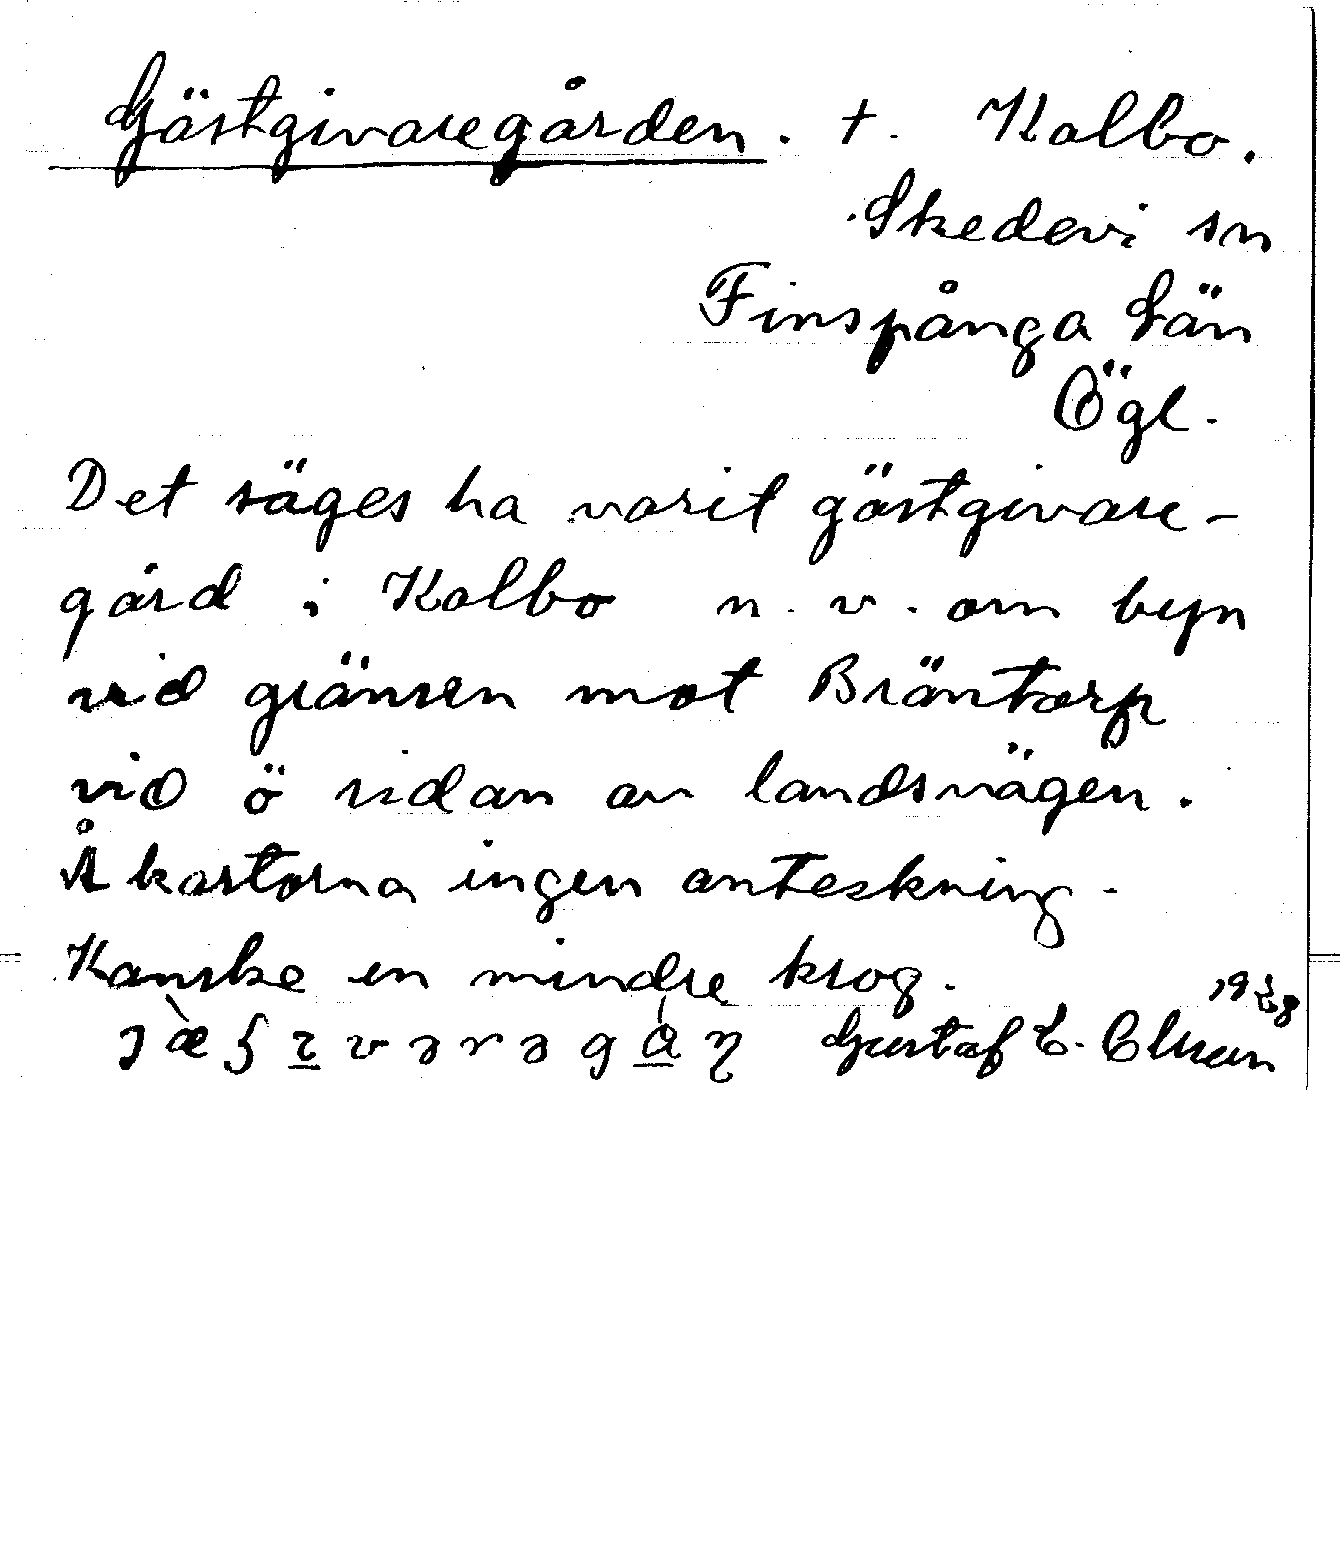 Gästgivaregården. †. Kolbo.
Skedevi sn
Finspånga Län
Ögl.
Det säges ha varit gästgivare-
gård i Kolbo n.v. om byn
vid gränsen mot Bräntorp
vid ö sidan av landsvägen.
Å kartorna ingen anteckning.
Kanske en mindre krog.
Gustaf E.